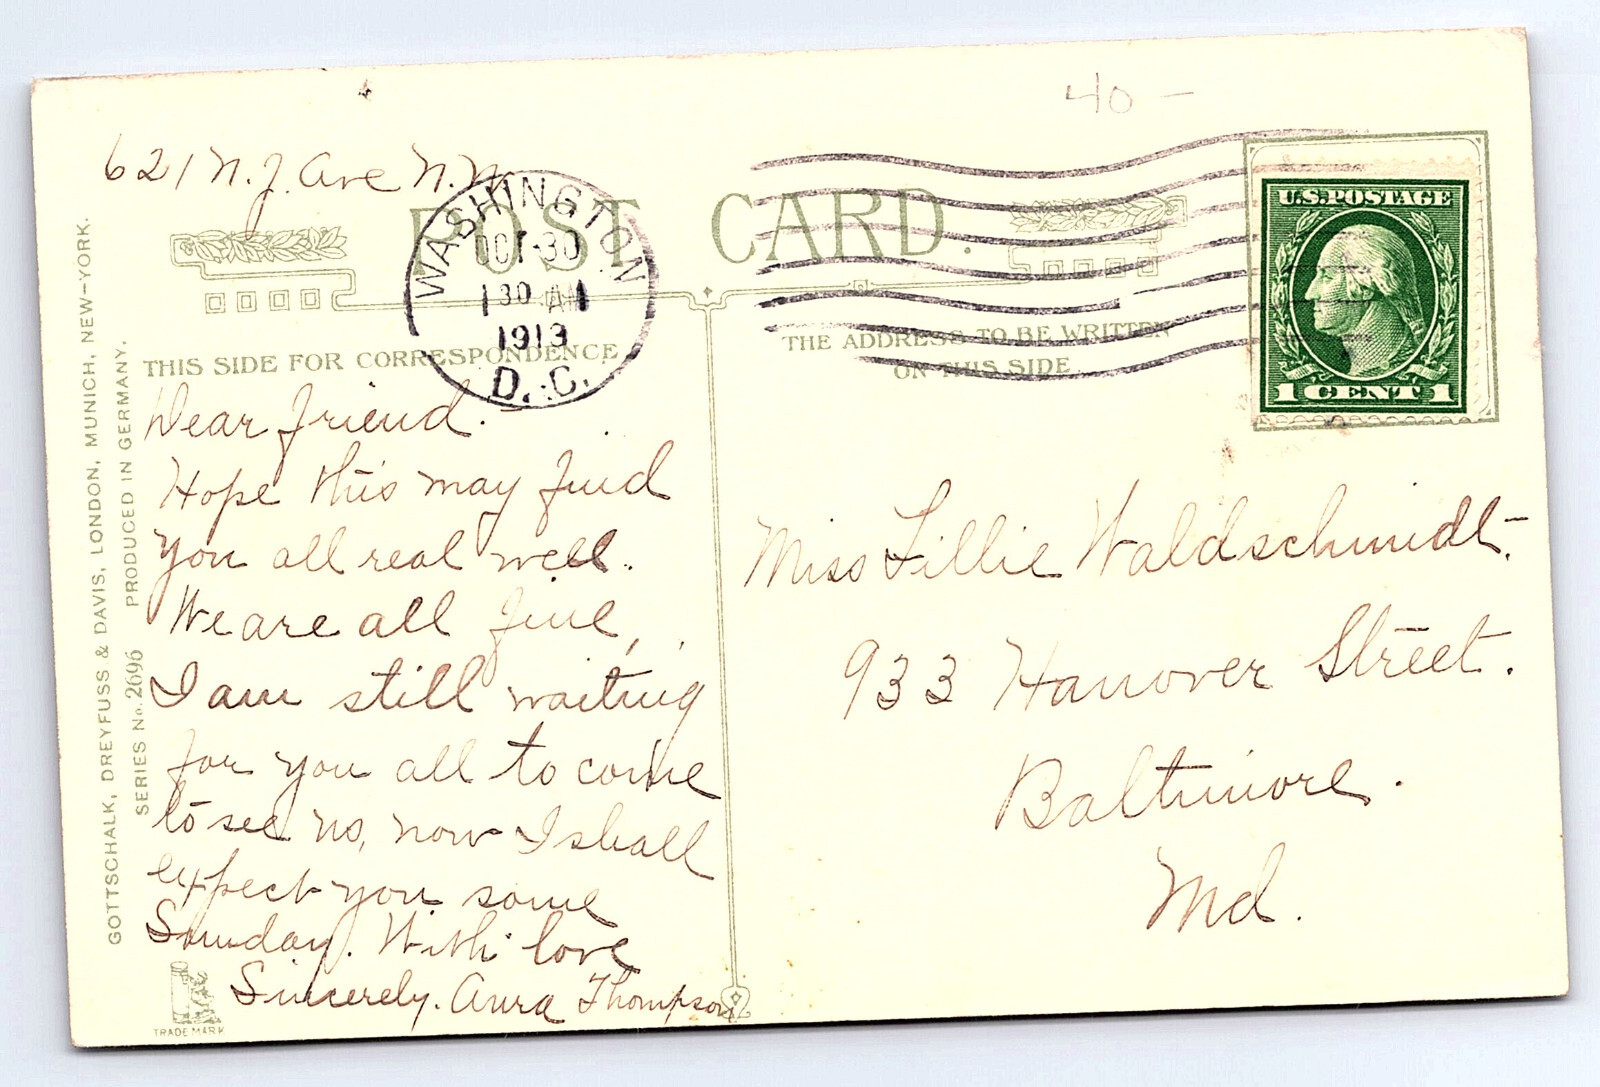 40 -
621 N. J. Ave N.W.
POST CARD.
WASHINGTON
OCT 30
1 30 AM
1913
D. C.
U.S. POSTAGE
1 CENT 1
THIS SIDE FOR CORRESPONDENCE
THE ADDRESS TO BE WRITTEN
ON THIS SIDE
Dear friend.
Hope this may find
you all real well.
We are all fine,
I am still waiting
for you all to come
to see us, now I shall
expect you some
Sunday. With love
Sincerely. Aura Thompson
Miss Lillie Waldschmidt.
933 Hanover Street.
Baltimore.
Md.
GOTTSCHALK, DREYFUSS & DAVIS, LONDON, MUNICH, NEW-YORK.
SERIES No. 2696 PRODUCED IN GERMANY.
TRADE MARK